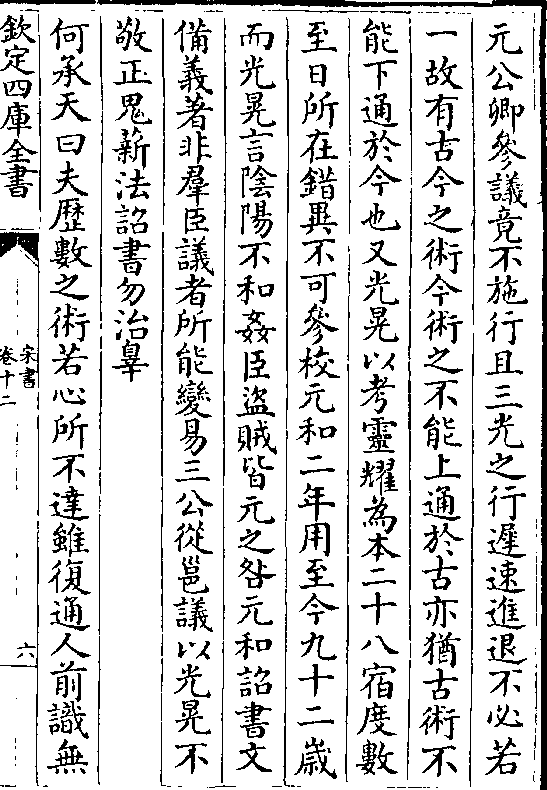 元公卿參議竟不施行且三光之行遲速進退不必若
一故有古今之術今術之不能上通於古亦猶古術不
能下通於今也又光晃以考靈耀為本二十八宿度數
至日所在錯異不可參校元和二年用至今九十二歲
而光晃言陰陽不和姦臣盜賊皆元之咎元和詔書文
備義著非羣臣議者所能變易三公從邕議以光晃不
敬正鬼薪法詔書勿治辠
何承天曰夫歴數之術若心所不達雖復通人前識無
欽定四庫全書
宋書
卷十二
六